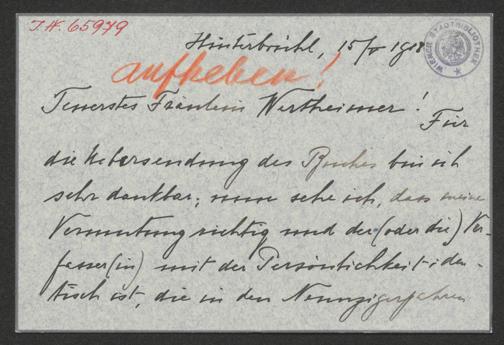 J.N. 65979
WIENER STADTBIBLIOTHEK
Hinterbrühl, 15/V 1918
aufheben!
Teuerstes Fräulein Wertheimer!
Für
die Uebersendung des Buches bin ich
sehr dankbar; nun sehe ich, dass meine
Vermutung richtig und der (oder die) Ver-
fasser(in) mit der Persönlichkeit iden-
tisch ist, die in den Neunzigerjahren